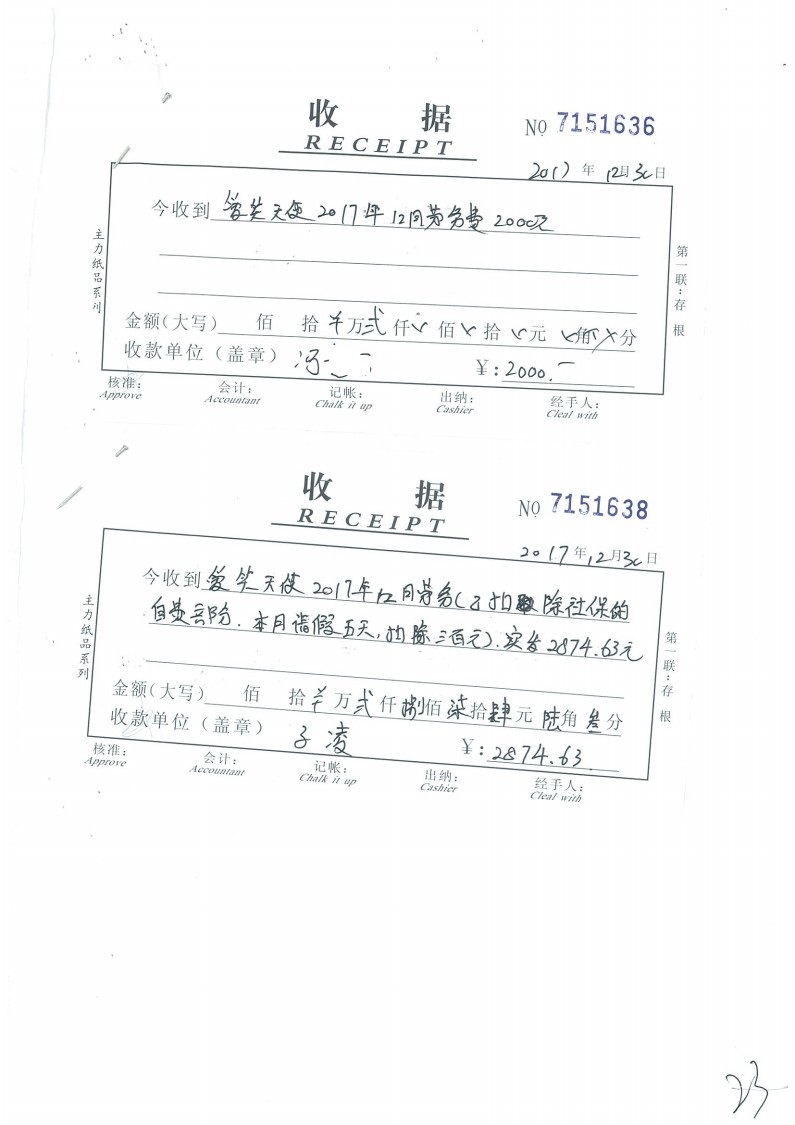 收 据
RECEIPT
No 7151636
2017年12月30日
今收到 爱笑天使2017年12月劳务费2000元
金额(大写) 佰 拾 ¥万 贰仟 佰 拾 元 角 分
收款单位（盖章） 冯
¥: 2000.-
核准： 会计： 记帐： 出纳： 经手人：
Approve Accountant Chalk it up Cashier Cleal with
主力纸品系列
第一联：存根
收 据
RECEIPT
No 7151638
2017年12月30日
今收到 爱笑天使2017年12月劳务(已扣除社保的
自费部份.本月请假五天,扣除三百元).实发2874.63元
金额(大写) 佰 拾 ¥万 贰仟 捌佰 柒拾 肆元 陆角 叁分
收款单位（盖章） 子凌
¥: 2874.63
核准： 会计： 记帐： 出纳： 经手人：
Approve Accountant Chalk it up Cashier Cleal with
主力纸品系列
第一联：存根
23